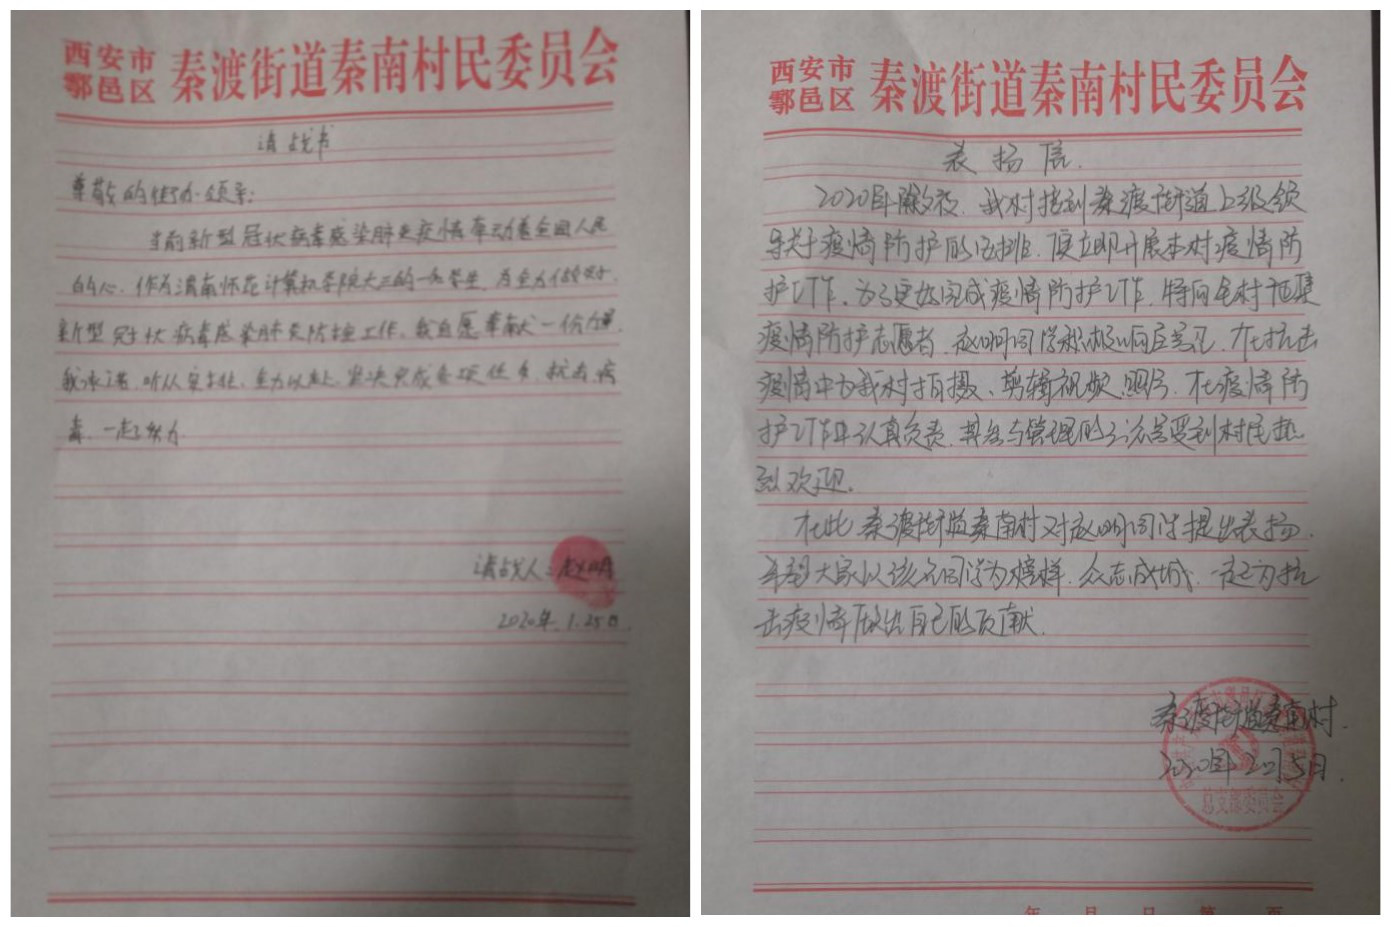 西安市
鄠邑区 秦渡街道秦南村民委员会
请战书
尊敬的街办领导:
当前新型冠状病毒感染肺炎疫情牵动着全国人民
的心,作为渭南师范计算机学院大三的一名学生,为全力做好
新型冠状病毒感染肺炎防控工作,我自愿奉献一份力量,
我承诺,听从安排,全力以赴,坚决完成各项任务,抗击病
毒,一起努力
请战人:赵明
2020年.1.25日.
西安市
鄠邑区 秦渡街道秦南村民委员会
表扬信.
2020年除夕夜,我村接到秦渡街道上级领
导关于疫情防护的安排,便立即开展本村疫情防
护工作,为了更好完成疫情防护工作,特向全村招集
疫情防护志愿者,赵明同学积极响应号召,在抗击
疫情中为我村拍摄、剪辑视频、照片,在疫情防
护工作中认真负责,其参与管理的 受到村民热
烈欢迎.
在此秦渡街道秦南村对赵明同学提出表扬,
希望大家以该名同学为榜样,众志成城,一起为抗
击疫情做出自己的贡献.
秦渡街道秦南村.
2020年2月5日.
总支部委员会
年 月 日 第 页